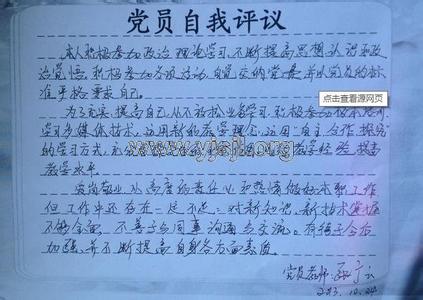 党员自我评议
本人积极参加政治理论学习,不断提高思想认识和政
治觉悟。积极参加各项活动,自觉交纳党费,并以党员的标
准严格要求自己。
点击查看源网页
为了充实、提高自己,从不放松业务学习,积极参加
学习多媒体技术,运用新的教学理念,运用"自主合作探究"
的学习方式,
教学经验,提高
教学水平。
www.yjsjl.org
爱岗敬业,以高度的责任心和热情做好本职工作
但工作中还存在一定不足:对新知识、新技术掌握
不够全面,不善于与同事沟通与交流。有待于今后
加强,并不断提高自身各方面素质。
党员教师:
10.24